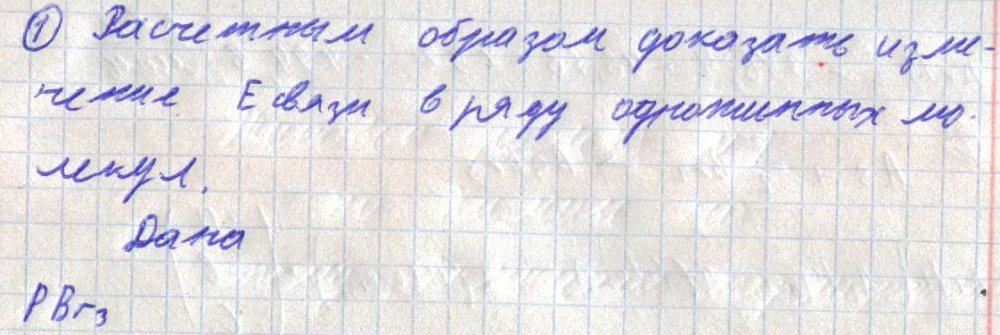 ① Расчетным образом доказать изме-
нение E связи в ряду однотипных мо-
лекул.
Дана
PBr₃